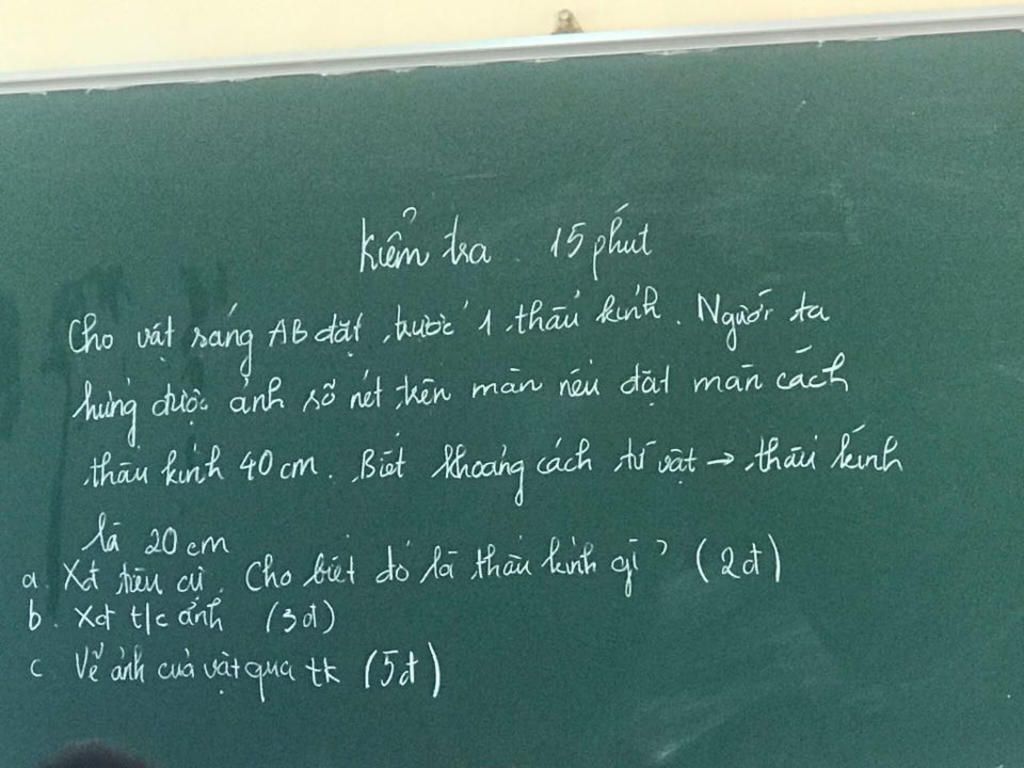 Kiểm tra. 15 phút
Cho vật sáng AB đặt trước 1 thấu kính. Người ta
hứng được ảnh rõ nét trên màn nếu đặt màn cách
thấu kính 40 cm. Biết khoảng cách từ vật → thấu kính
là 20 cm
a. Xđ tiêu cự. Cho biết đó là thấu kính gì? (2đ)
b. Xđ t/c ảnh (3đ)
c Vẽ ảnh của vật qua tk (5đ)